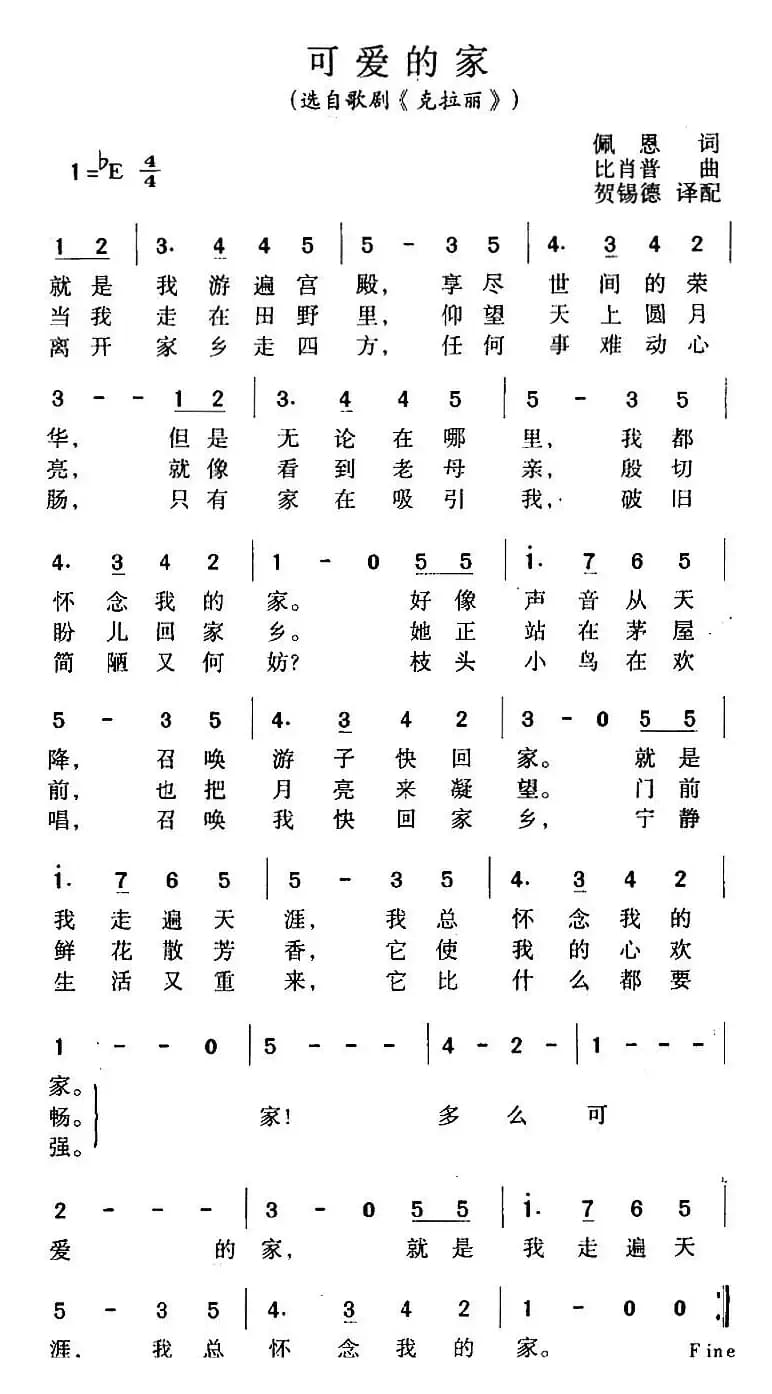 可爱的家
(选自歌剧《克拉丽》)
佩恩 词
1=♭E 4/4
比肖普 曲
贺锡德 译配
1 2 | 3. 4 4 5 | 5 - 3 5 | 4. 3 4 2 |
就是 我游遍宫 殿，享尽 世间的荣
当我 走在田野 里，仰望 天上圆月
离开 家乡走四 方，任何 事难动心
3 - - 1 2 | 3. 4 4 5 | 5 - 3 5 |
华，但是 无论在哪 里，我都
亮，就像 看到老母 亲，殷切
肠，只有 家在吸引 我，破旧
4. 3 4 2 | 1 - 0 5 5 | i. 7 6 5 |
怀念我的 家。好像 声音从天
盼儿回家 乡。她正 站在茅屋
简陋又何 妨？枝头 小鸟在欢
5 - 3 5 | 4. 3 4 2 | 3 - 0 5 5 |
降，召唤 游子快回 家。就是
前，也把 月亮来凝 望。门前
唱，召唤 我快回家 乡，宁静
i. 7 6 5 | 5 - 3 5 | 4. 3 4 2 |
我走遍天 涯，我总 怀念我的
鲜花散芳 香，它使 我的心欢
生活又重 来，它比 什么都要
1 - - 0 | 5 - - - | 4 - 2 - | 1 - - - |
家。
畅。 家！ 多么可
强。
2 - - - | 3 - 0 5 5 | i. 7 6 5 |
爱 的家，就是 我走遍天
5 - 3 5 | 4. 3 4 2 | 1 - 0 0 :||
涯，我总 怀念我的 家。 Fine